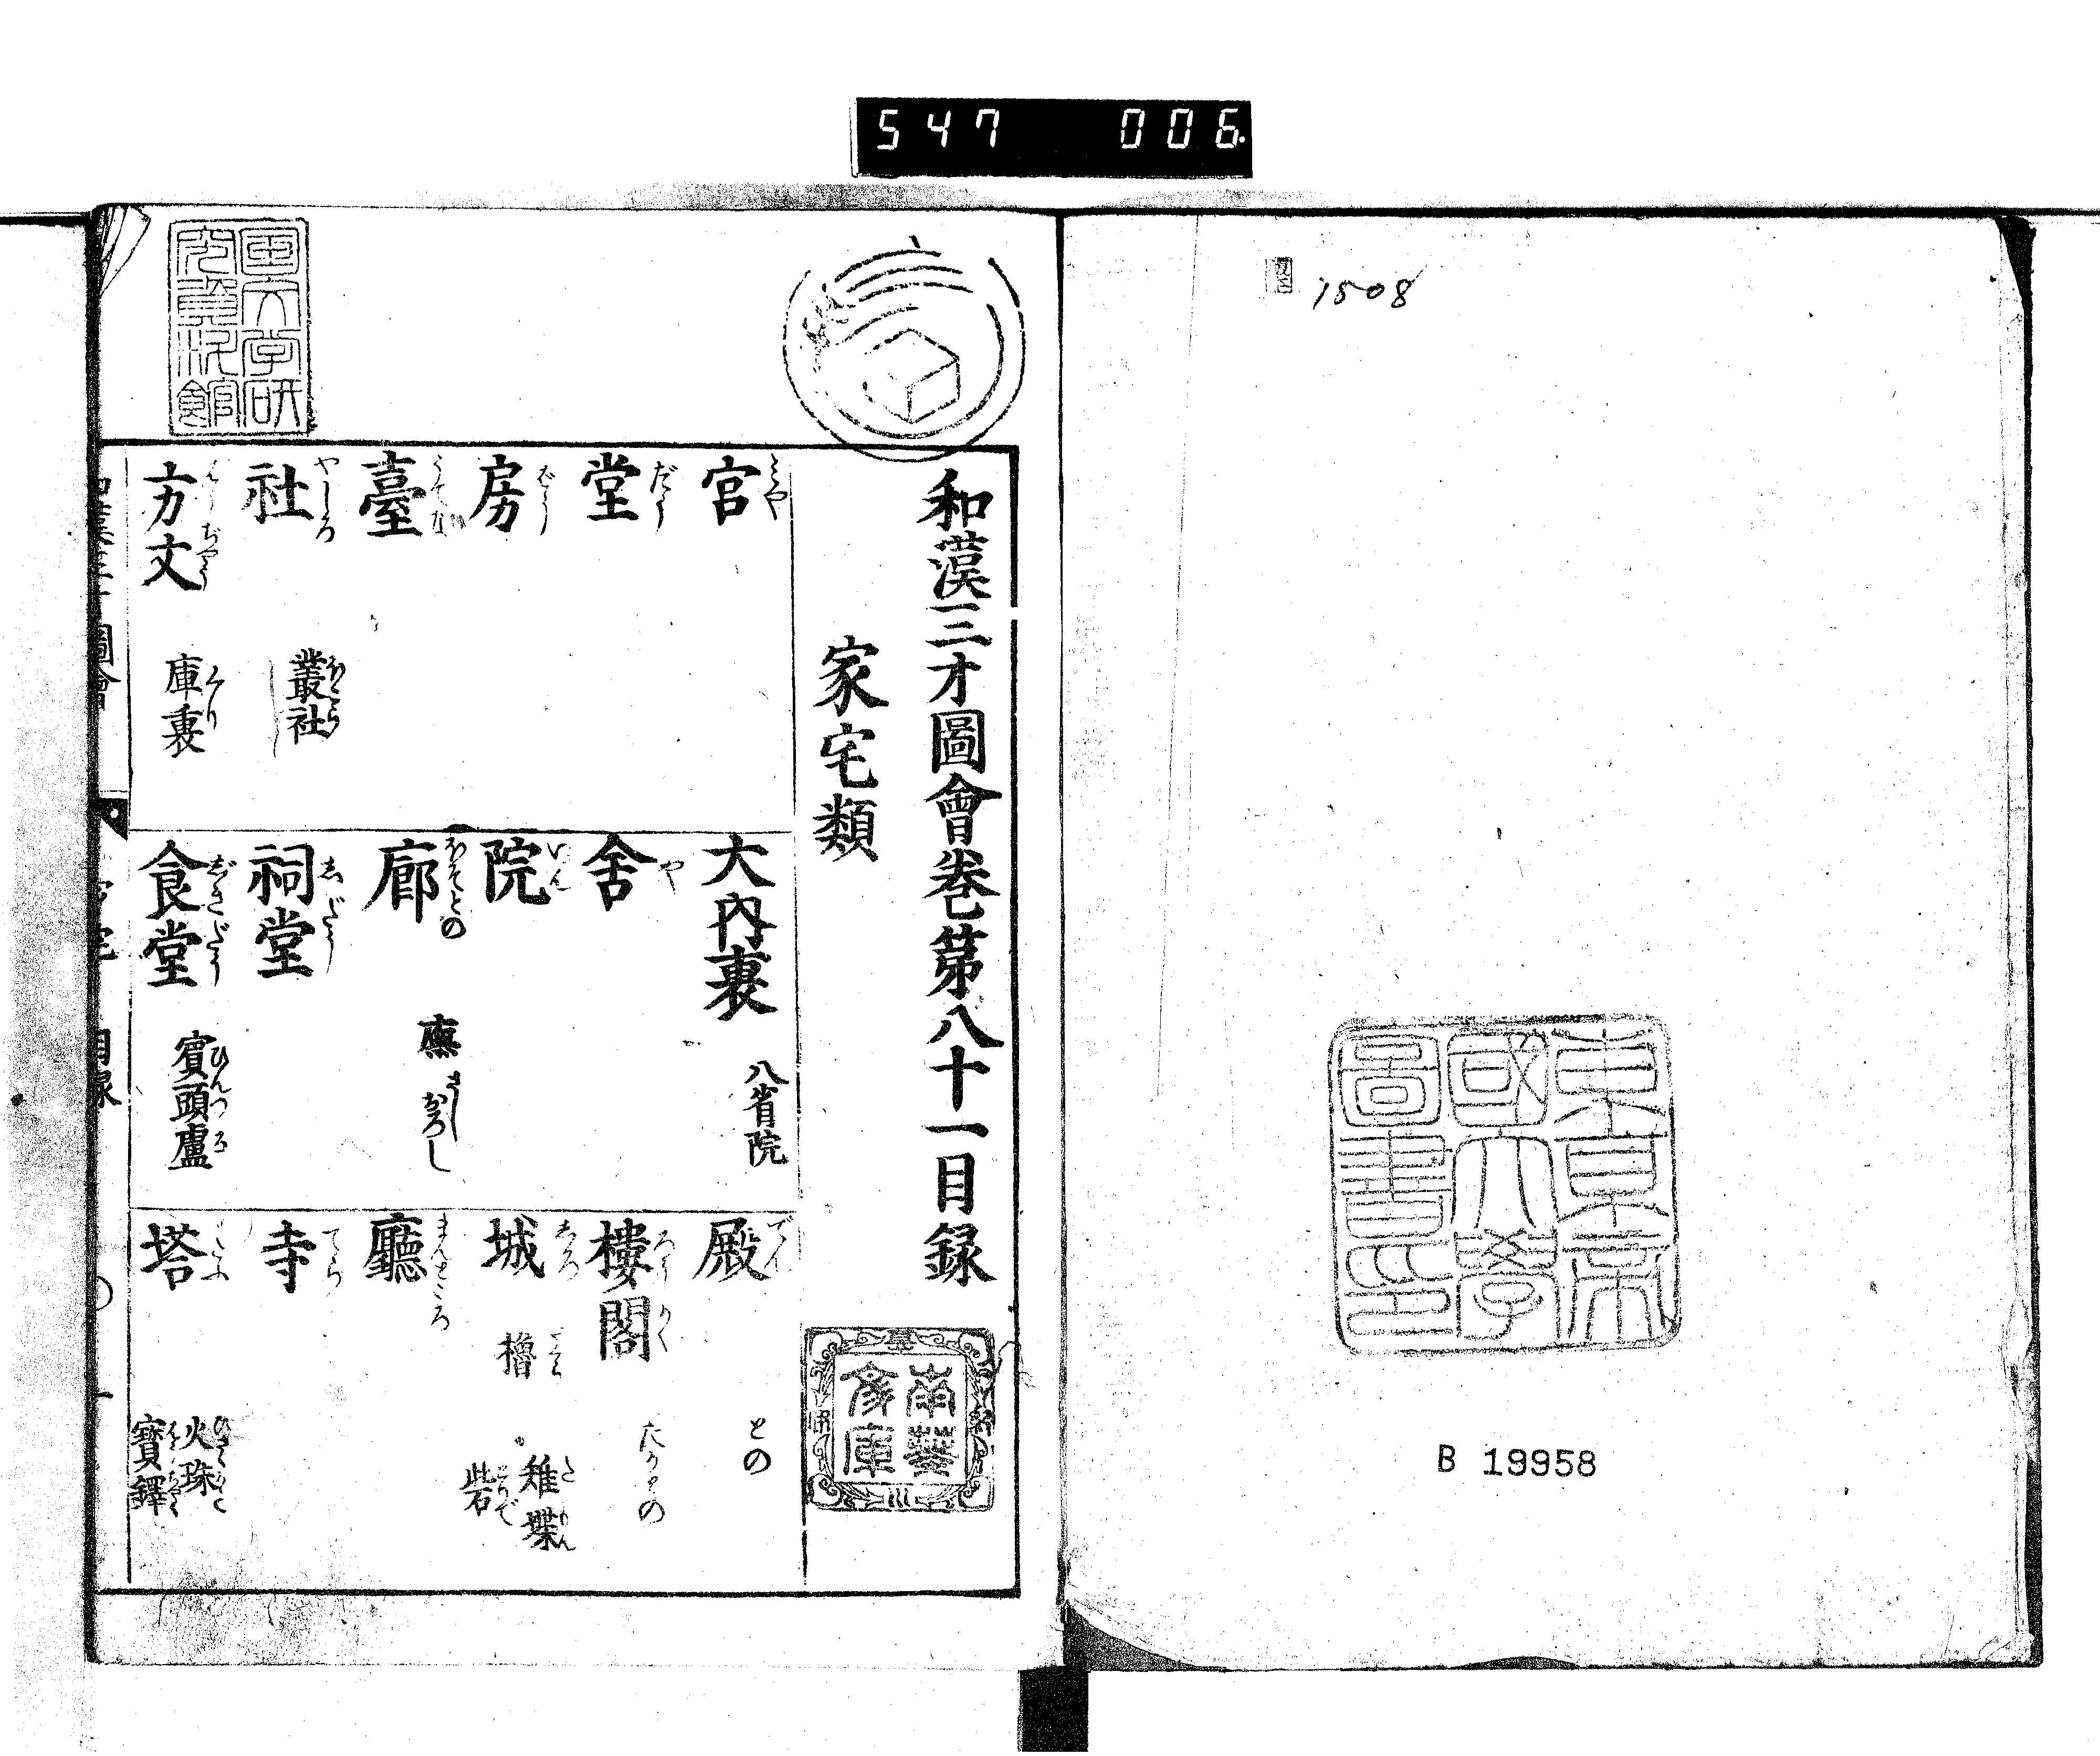 547 006
1508
東京帝
國大學
圖書印
B 19958
和漢三才圖會巻第八十一目録
家宅類
南葵
文庫
宮 みや
大内裏 八省院
殿 でん との
堂 だう
舎 や
樓閣 ろうかく たかどの
房 ばう
院 いん
城 しろ 櫓 雉堞 砦 とりで
臺 うてな
廊 ほそどの 廡 さしおろし
廳 まんどころ
社 やしろ 叢社 ほこら
祠堂 しだう
寺 てら
方丈 はうぢやう 庫裏 くり
食堂 じきだう 賓頭盧 ひんづる
塔 たふ 火珠 寶鐸
国文学研
究資料館